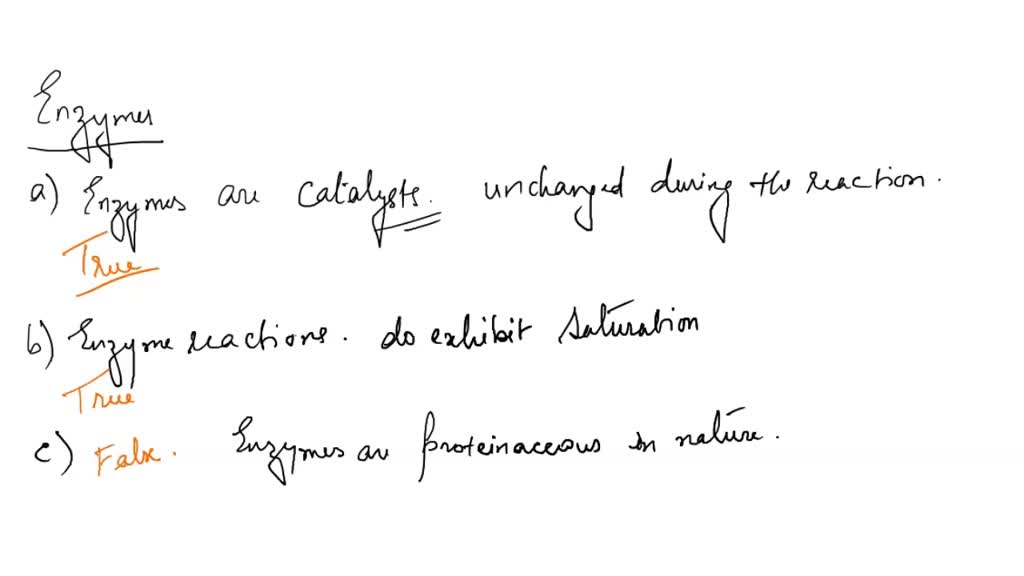 Enzymes
a) Enzymes are catalysts. unchanged during the reaction.
True
b) Enzyme reactions. do exhibit saturation
True
c) False. Enzymes are proteinaceous in nature.